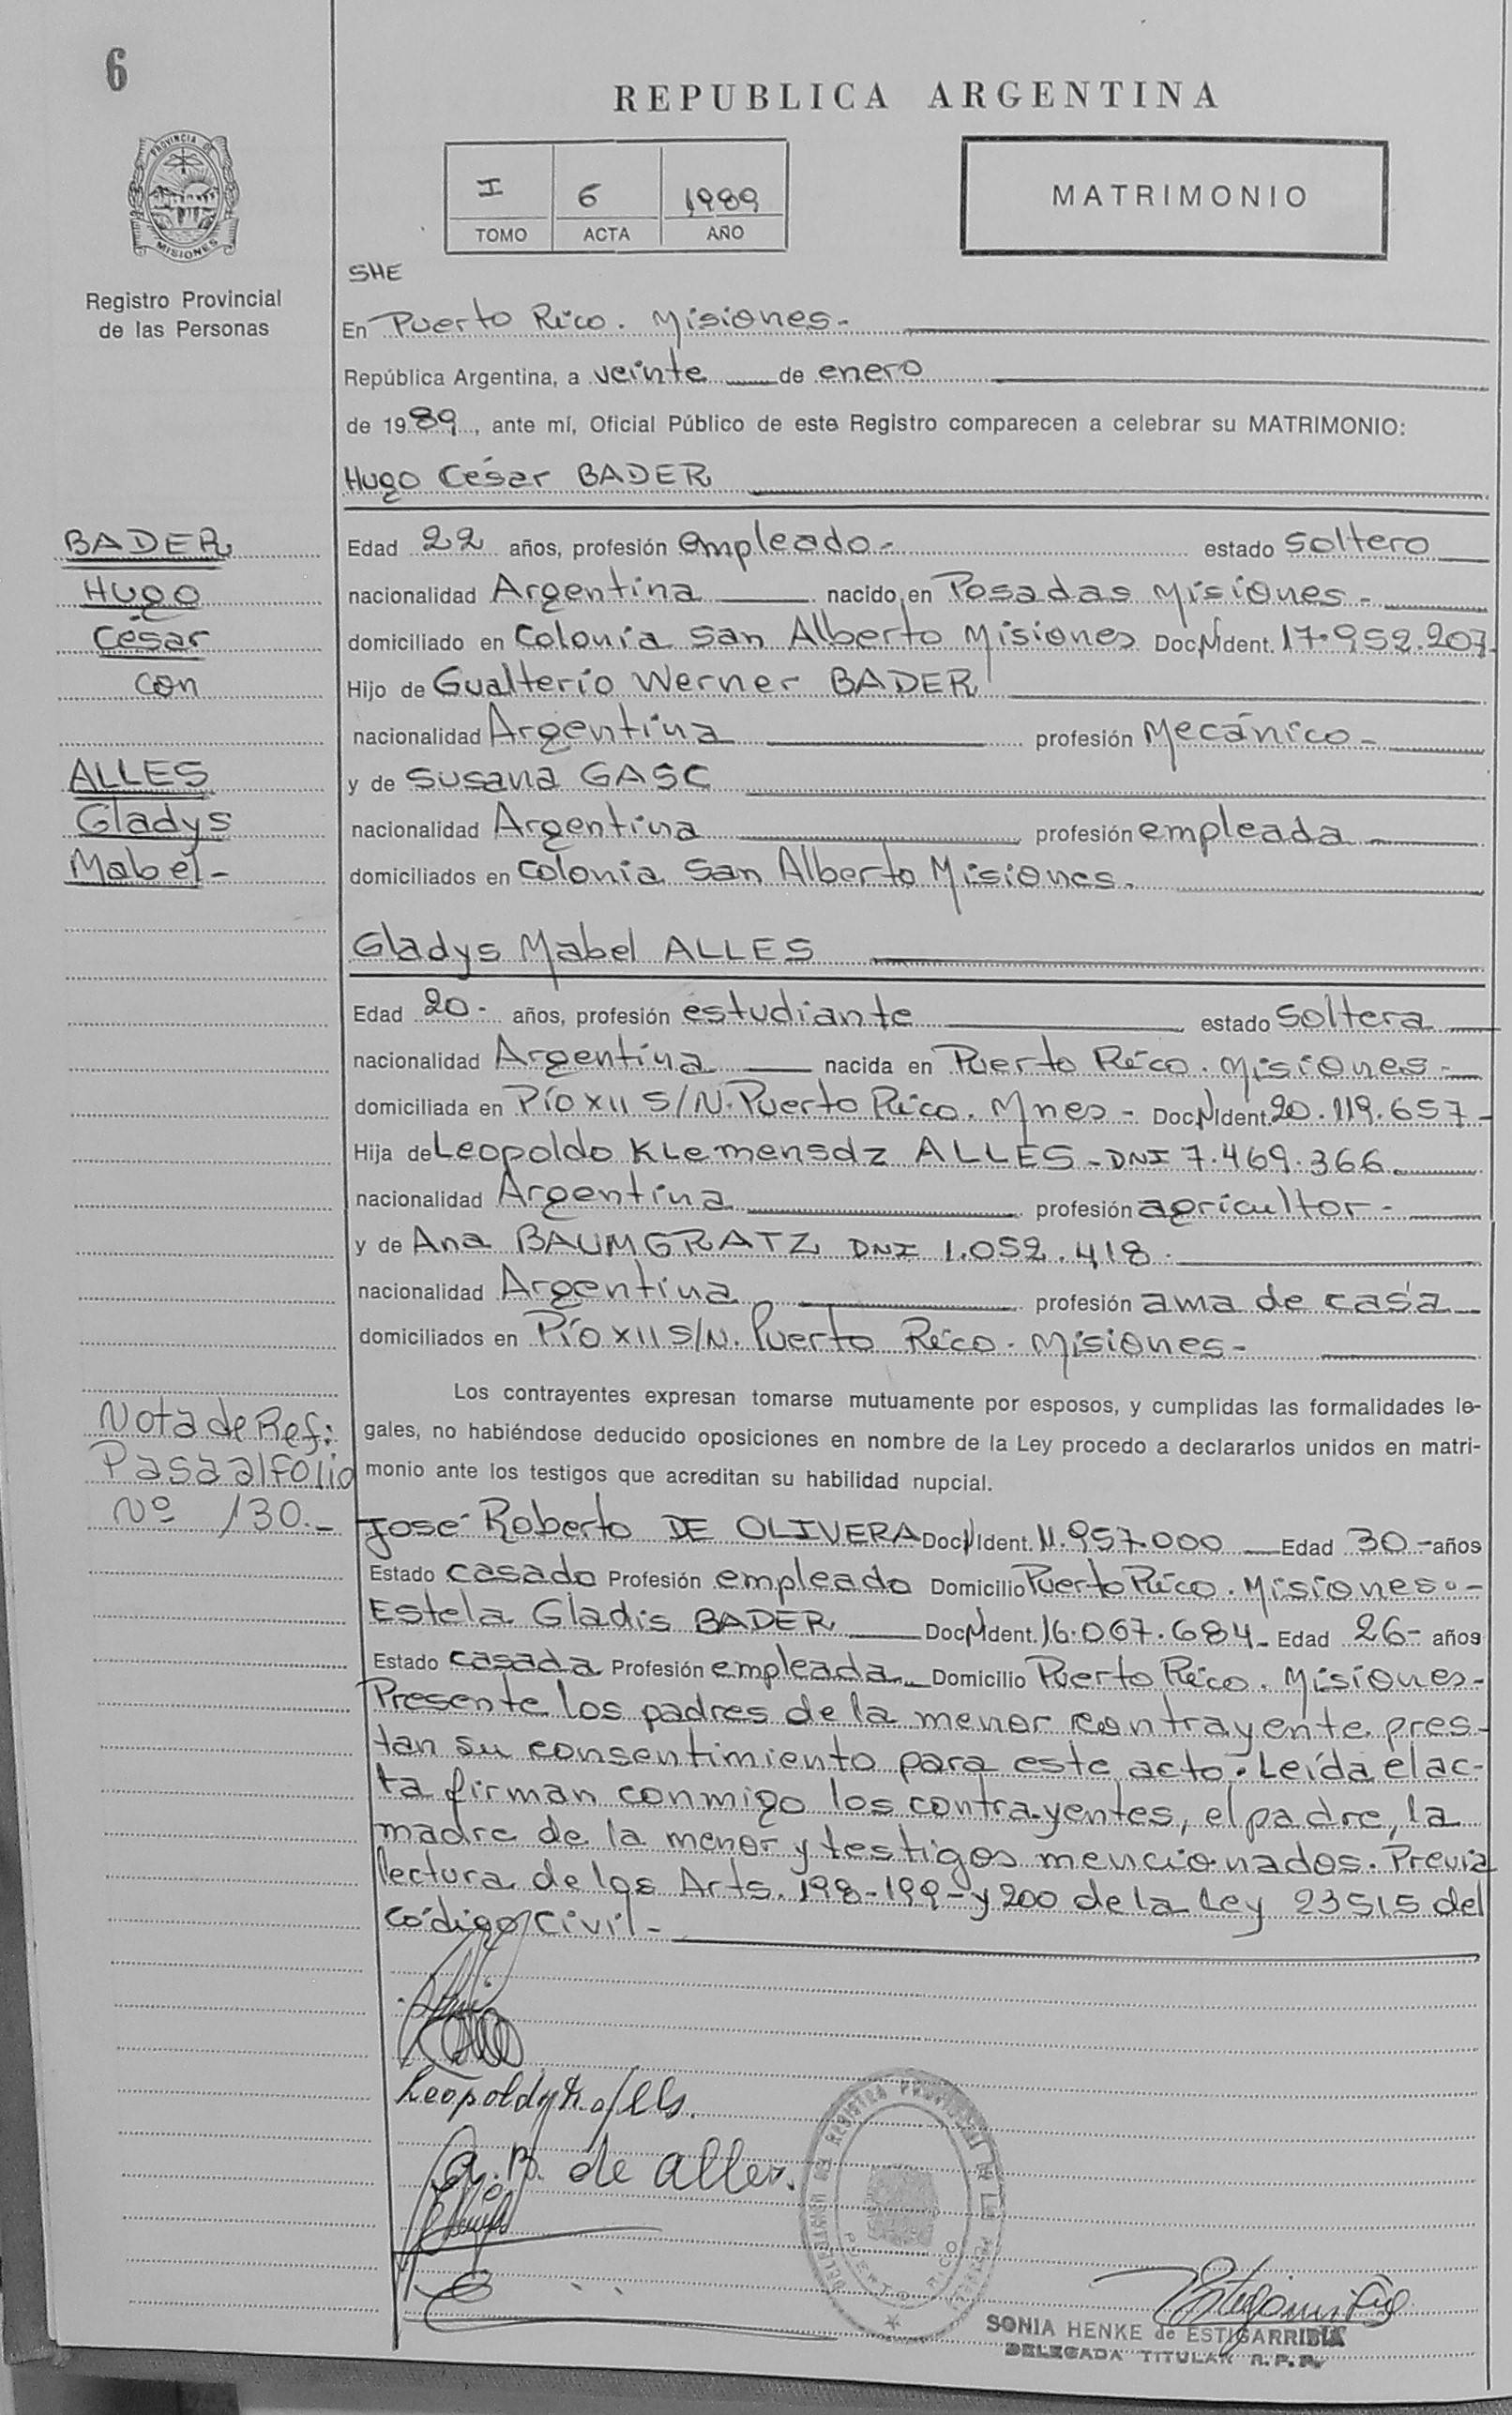 6
REPUBLICA ARGENTINA
PROVINCIA DE
MISIONES
Registro Provincial
de las Personas
I 6 1989
TOMO ACTA AÑO
MATRIMONIO
SHE
En Puerto Rico. Misiones-
República Argentina, a veinte de enero
de 1989, ante mí, Oficial Público de este Registro comparecen a celebrar su MATRIMONIO:
Hugo César BADER
BADER
Hugo
César
con
ALLES
Gladys
Mabel-
Edad 22 años, profesión empleado- estado soltero
nacionalidad Argentina nacido en Posadas Misiones-
domiciliado en Colonia San Alberto Misiones Doc.N Ident. 17.952.207
Hijo de Gualterio Werner BADER
nacionalidad Argentina profesión Mecánico-
y de Susana GASC
nacionalidad Argentina profesión empleada
domiciliados en Colonia San Alberto Misiones.
Gladys Mabel ALLES
Edad 20- años, profesión estudiante estado soltera
nacionalidad Argentina nacida en Puerto Rico. Misiones-
domiciliada en Pío XII S/N. Puerto Rico. Mnes- Doc.N Ident. 20.119.657-
Hija de Leopoldo Klemensdz ALLES-DNI 7.469.366
nacionalidad Argentina profesión agricultor-
y de Ana BAUMGRATZ DNI 1.052.418.
nacionalidad Argentina profesión ama de casa
domiciliados en Pío XII S/N. Puerto Rico. Misiones-
Los contrayentes expresan tomarse mutuamente por esposos, y cumplidas las formalidades le-
gales, no habiéndose deducido oposiciones en nombre de la Ley procedo a declararlos unidos en matri-
monio ante los testigos que acreditan su habilidad nupcial.
Nota de Ref:
Pasa al folio
Nº 130.-
José Roberto DE OLIVERA Doc.N Ident. 11.957.000 Edad 30- años
Estado casado Profesión empleado Domicilio Puerto Rico. Misiones.-
Estela Gladis BADER Doc.N Ident. 16.067.684- Edad 26- años
Estado casada Profesión empleada Domicilio Puerto Rico. Misiones-
Presente los padres de la menor contrayente pres-
tan su consentimiento para este acto. Leída el ac-
ta firman conmigo los contrayentes, el padre, la
madre de la menor y testigos mencionados. Previa
lectura de los Arts. 198-199-y 200 de la Ley 23515 del
código civil-
A.B. de Alles.
PUERTO RICO
SONIA HENKE de ESTIGARRIBIA
DELEGADA TITULAR R.P.P.